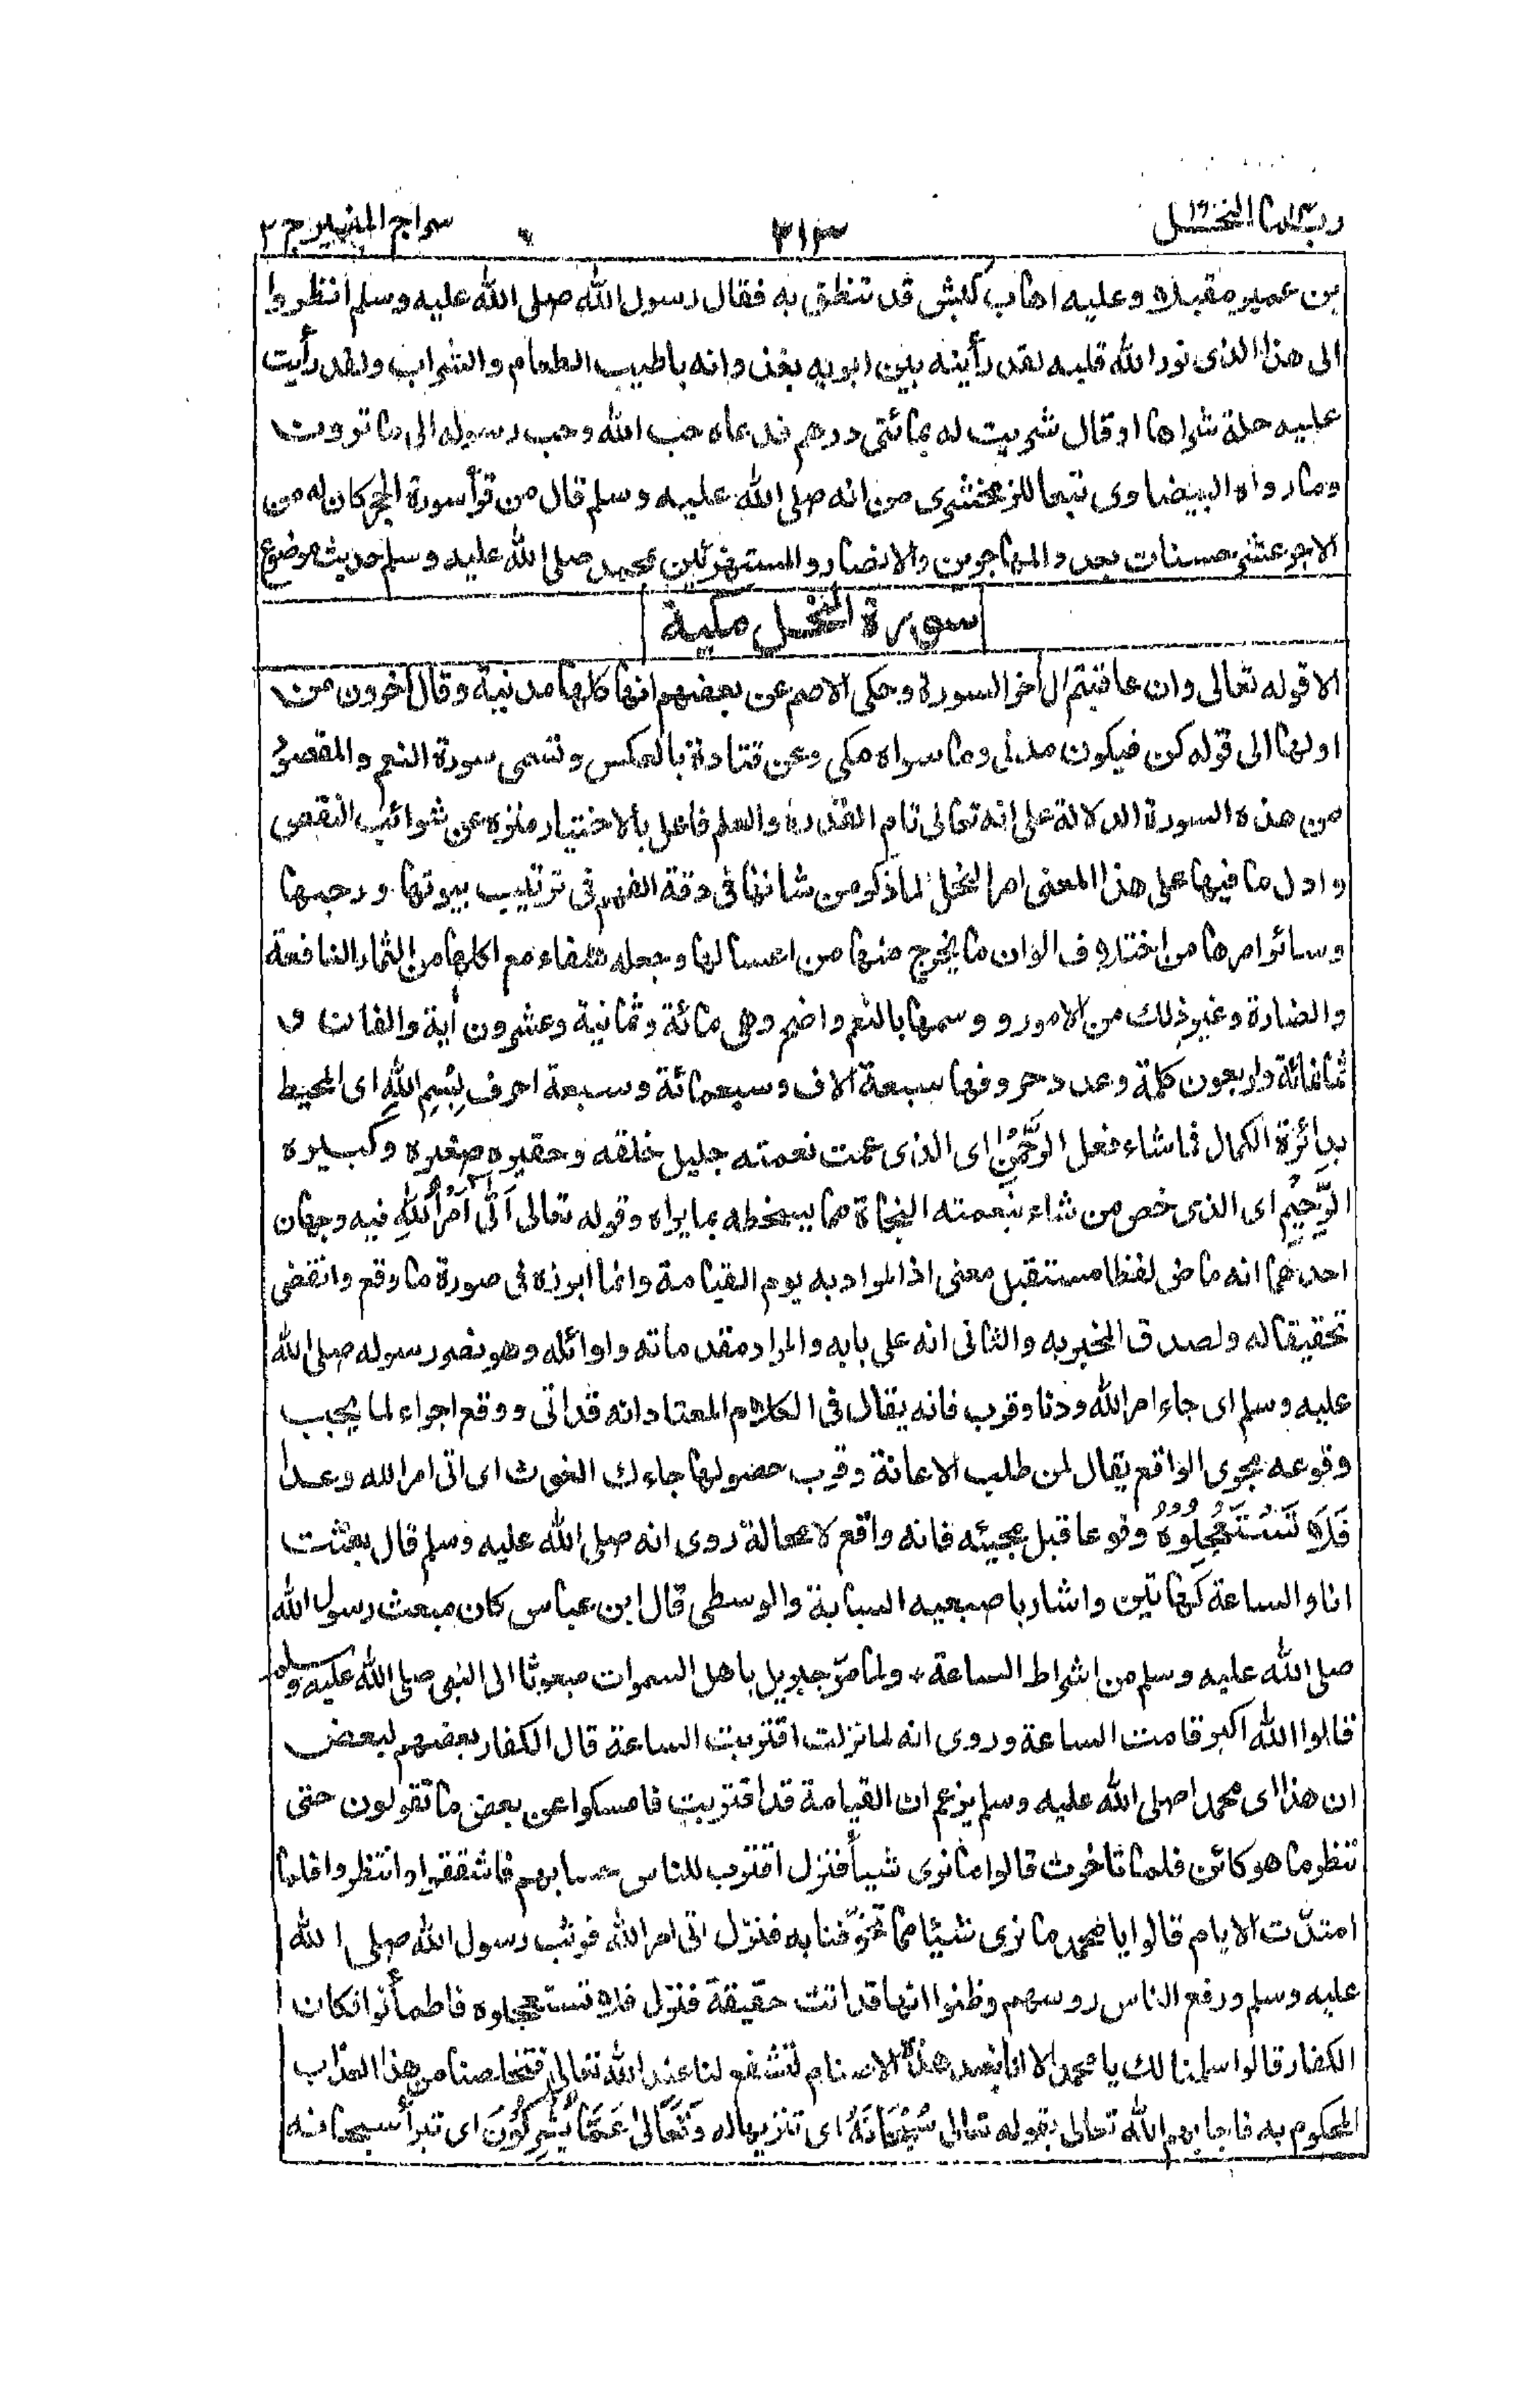 ربما النحل ٣١٣ سراج المنير ج ٢
بن عمير مقبلا وعليه اهاب كبش قد تنطق به فقال رسول الله صلى الله عليه وسلم انظروا
الى هذا الذى نور الله قلبه لقد رأيته بين ابويه يغذوانه باطيب الطعام والشراب ولقد رأيت
عليه حلة شراها او قال شريت له بمائتى درهم فدعاه حب الله وحب رسوله الى ما ترون
وما رواه البيضاوى تبعا للزمخشرى من انه صلى الله عليه وسلم قال من قرأ سورة الحجر كان له من
الاجر عشر حسنات بعدد المهاجرين والانصار والمستهزئين بمحمد صلى الله عليه وسلم حديث موضوع
سورة النحل مكية
الا قوله تعالى وان عاقبتم الى أخر السورة وحكى الاصم عن بعضهم انها كلها مدنية وقال أخرون من
اولها الى قوله كن فيكون مدنى وما سواه مكى وعن قتادة بالعكس وتسمى سورة النعم والمقصود
من هذه السورة الدلالة على انه تعالى تام القدرة والعلم فاعل بالاختيار منزه عن شوائب النقص
وادل ما فيها على هذا المعنى امر النحل لما ذكر من شانها فى دقة الفهم فى ترتيب بيوتها ورحبها
وسائر امرها من اختلاف الوان ما يخرج منها من اعسالها وجعله شفاء مع اكلها من الثمار النافعة
والضارة وغير ذلك من الامور ووسمها بالنعم واضح وهى مائة وثمانية وعشرون أية والفان و
ثمانمائة واربعون كلمة وعدد حروفها سبعة الاف وسبعمائة وسبعة احرف بِسْمِ اللهِ اى المحيط
بدائرة الكمال فما شاء فعل الرَّحْمٰنِ اى الذى عمت نعمته جليل خلقه وحقيره صغيره وكبيره
الرَّحِيْمِ اى الذى خص من شاء بنعمته النجاة مما يسخطه بما يراه وقوله تعالى اَتٰى اَمْرُ اللهِ فيه وجهان
احدهما انه ماض لفظا مستقبل معنى اذ المراد به يوم القيامة وانما ابرزه فى صورة ما وقع وانقضى
تحقيقا له ولصدق المخبر به والثانى انه على بابه والمراد مقدماته واوائله وهو نصر رسوله صلى الله
عليه وسلم اى جاء امر الله ودنا وقرب فانه يقال فى الكلام المعتاد انه قد اتى ووقع اجراء لما يجب
وقوعه مجرى الواقع يقال لمن طلب الاعانة وقرب حصولها جاءك الغوث اى اتى امر الله وعدا
فَلَا تَسْتَعْجِلُوْهُ وقوعا قبل مجيئه فانه واقع لا محالة روى انه صلى الله عليه وسلم قال بعثت
انا والساعة كهاتين واشار باصبعيه السبابة والوسطى قال ابن عباس كان مبعث رسول الله
صلى الله عليه وسلم من اشراط الساعة ولما مرّ جبريل باهل السموات مبعوثا الى النبى صلى الله عليه وسلم
قالوا الله اكبر قامت الساعة وروى انه لما نزلت اقتربت الساعة قال الكفار بعضهم لبعض
ان هذا اى محمدا صلى الله عليه وسلم يزعم ان القيامة قد اقتربت فامسكوا عن بعض ما تقولون حتى
تنظر ما هو كائن فلما تاخرت قالوا ما نرى شيأ فنزل اقترب للناس حسابهم فاشفقوا وانتظروا فلما
امتدّت الايام قالوا يا محمد ما نرى شيئا مما تخوّفنا به فنزل اتى امر الله فوثب رسول الله صلى الله
عليه وسلم ورفع الناس روسهم وظنوا انها قد اتت حقيقة فنزل فلا تستعجلوه فاطمأنوا فكان
الكفار قالوا سلمنا لك يا محمد الا انا نعبد هذه الاصنام لتشفع لنا عند الله تعالى فتخلصنا من هذا العذاب
المحكوم به فاجابهم الله تعالى بقوله تعالى سُبْحَانَهُ اى تنزيها له وَتَعَالٰى عَمَّا يُشْرِكُوْنَ اى تبرأ سبحانه